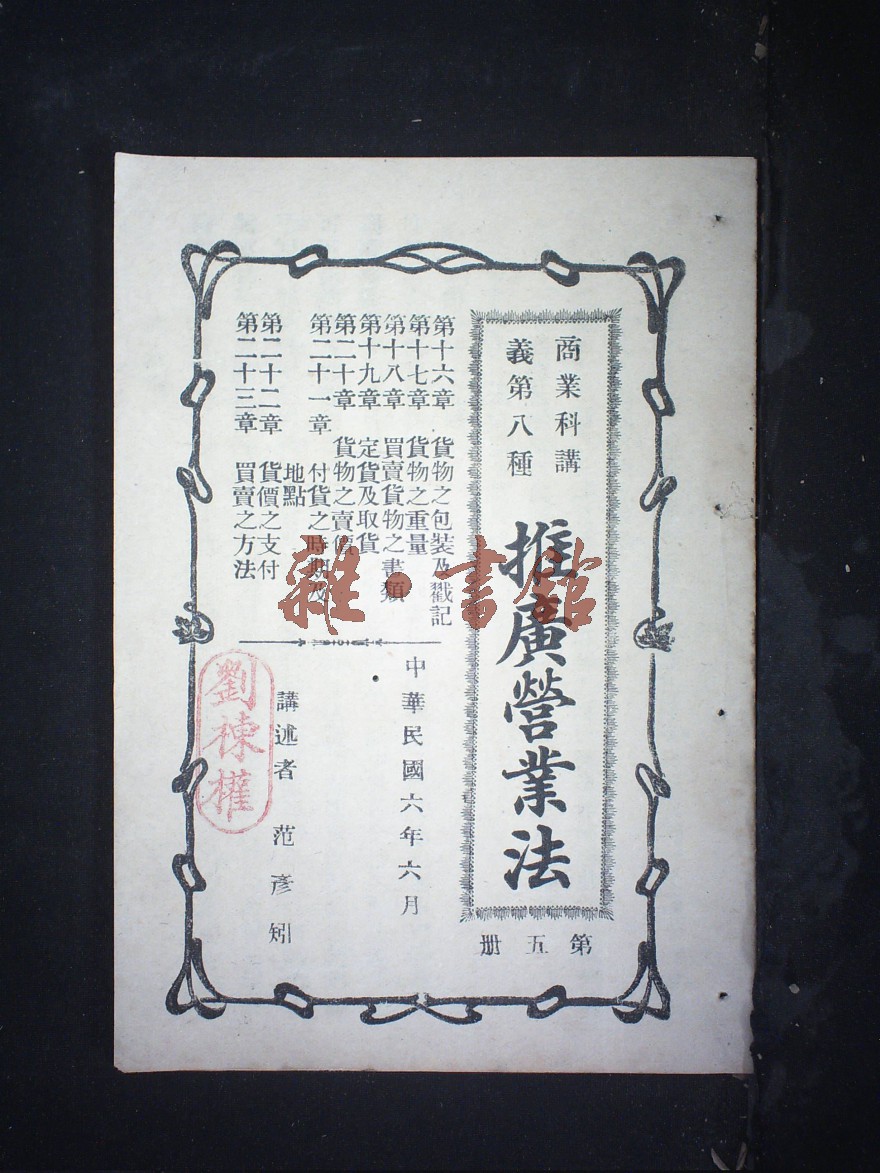 商業科講
義第八種
推廣營業法
第五册
第十六章 貨物之包裝及戳記
第十七章 貨物之重量
第十八章 買賣貨物之書類
第十九章 定貨及取貨
第二十章 貨物之賣價
第二十一章 付貨之時期及
地點
第二十二章 貨價之支付
第二十三章 買賣之方法
中華民國六年六月
講述者 范彥矧
劉棟權
雜·書館